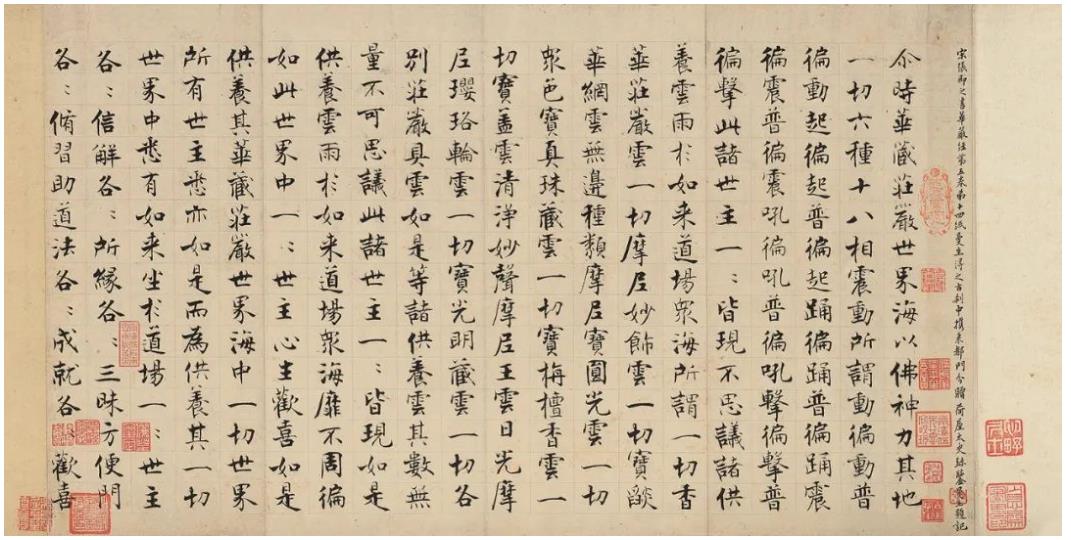 宋張即之書華嚴經第五卷弟十四紙曼生得之古刹中攜来都門分贈 荷屋太史 題記
尒時華藏莊嚴世界海以佛神力其地
一切六種十八相震動所謂動徧動普
徧動起徧起普徧起踊徧踊普徧踊震
徧震普徧震吼徧吼普徧吼擊徧擊普
徧擊此諸世主一〻皆現不思議諸供
養雲雨於如来道場衆海所謂一切香
華莊嚴雲一切摩尼妙飾雲一切寶燄
華網雲無邊種類摩尼寶圓光雲一切
衆色寶真珠藏雲一切寶栴檀香雲一
切寶盖雲清浄妙聲摩尼王雲日光摩
尼瓔珞輪雲一切寶光明藏雲一切各
別莊嚴具雲如是等諸供養雲其數無
量不可思議此諸世主一〻皆現如是
供養雲雨於如来道場衆海靡不周徧
如此世界中一〻世主心生歡喜如是
供養其華藏莊嚴世界海中一切世界
所有世主悉亦如是而為供養其一切
世界中悉有如来坐於道場一〻世主
各〻信解各〻所緣各〻三昧方便門
各〻脩習助道法各〻成就各〻歡喜